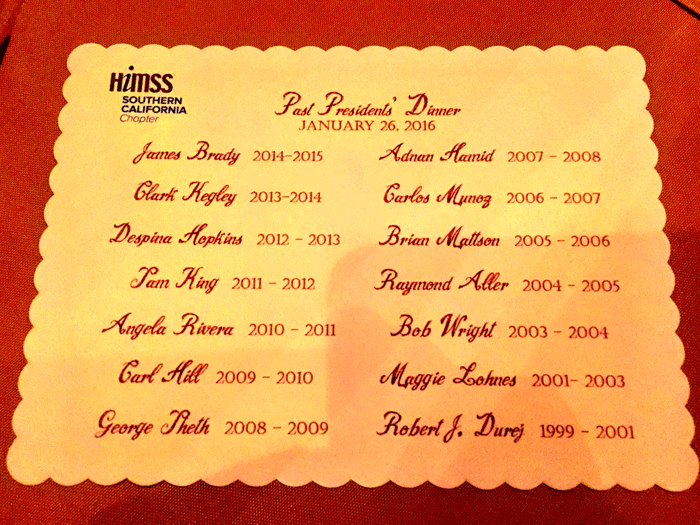 HiMSS
SOUTHERN
CALIFORNIA
Chapter
Past Presidents' Dinner
JANUARY 26, 2016
James Brady 2014-2015
Clark Kegley 2013-2014
Despina Hopkins 2012 - 2013
Pam King 2011 - 2012
Angela Rivera 2010 - 2011
Carl Hill 2009 - 2010
George Theth 2008 - 2009
Adnan Hamid 2007 - 2008
Carlos Munoz 2006 - 2007
Brian Mattson 2005 - 2006
Raymond Aller 2004 - 2005
Bob Wright 2003 - 2004
Maggie Lohnes 2001- 2003
Robert J. Durej 1999 - 2001